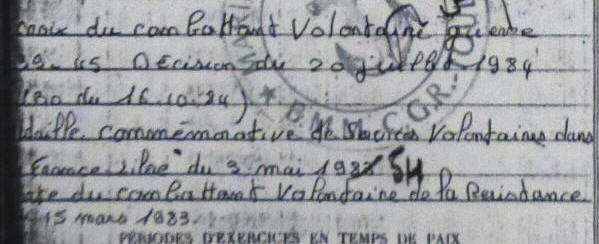 croix du combattant Volontaire guerre
39-45 Décision du 20 juillet 1984
(BO du 16.10.84)
Médaille commémorative de Services Volontaires dans
France Libre" du 3 mai 1985 54
carte du combattant Volontaire de la Resistance
15 mars 1983.
PÉRIODES D'EXERCICES EN TEMPS DE PAIX